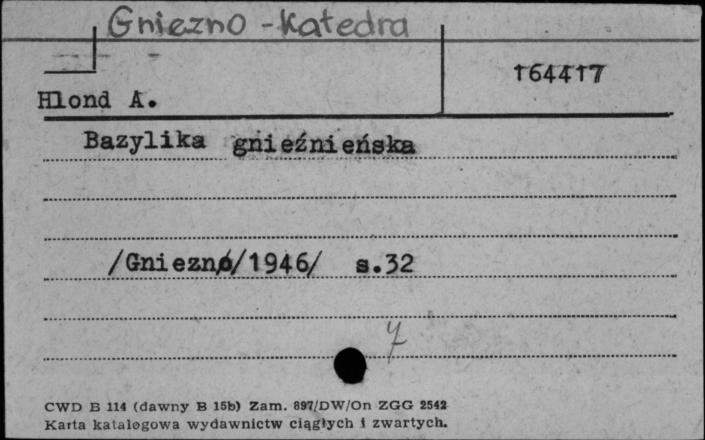 Gniezno - Katedra
164417
Hlond A.
Bazylika gnieźnieńska
/Gniezno/1946/ s.32
7
CWD B 114 (dawny B 15b) Zam. 897/DW/On ZGG 2542
Karta katalogowa wydawnictw ciągłych i zwartych.